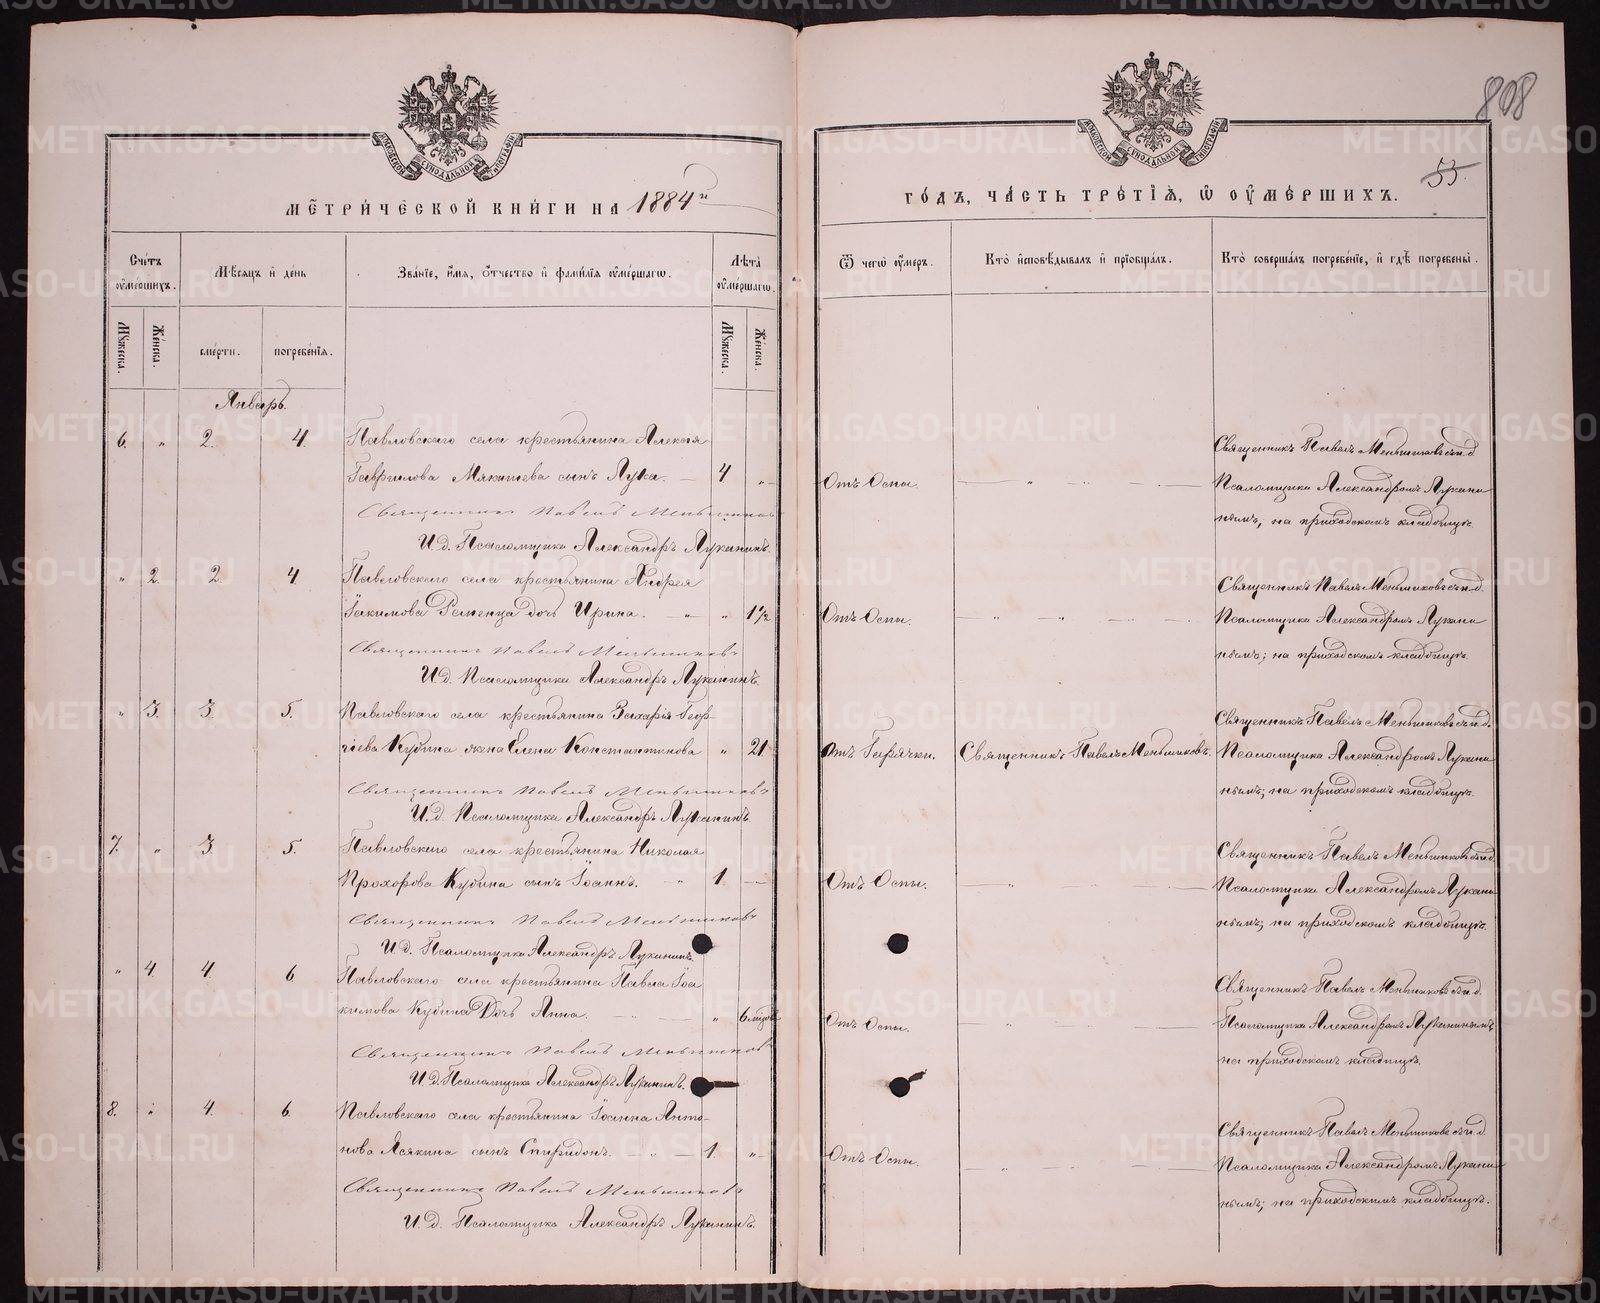 МОСКОВСКОЙ СѴНОДАЛЬНОЙ ТИПОГРАФІИ
МЕТРИЧЕСКОЙ КНИГИ НА 1884й
Счетъ умершихъ.
Мѣсяцъ и день
Званіе, имя, отчество и фамилія умершагѡ.
Лѣта умершагѡ.
Мужеска.
Женска.
смерти.
погребенія.
Мужеска.
Женска.
Январь.
6. " 2. 4. Павловскаго села крестьянина Алексѣя
Гаврилова Мякишева сынъ Лука. — 4 "
Священникъ Павелъ Меньшиковъ
И. д. Псаломщика Александръ Луканинъ.
" 2. 2. 4. Павловскаго села крестьянина Андрея
Іакимова дочь Ирина. — " " 1 1/2
Священникъ Павелъ Меньшиковъ
И. д. Псаломщика Александръ Луканинъ.
" 3. 3. 5. Павловскаго села крестьянина Захарія Геор-
гіева Кубина жена Елена Константинова " 21
Священникъ Павелъ Меньшиковъ
И. д. Псаломщика Александръ Луканинъ.
7. " 3 5. Павловскаго села крестьянина Николая
Прохорова Кубина сынъ Іоаннъ. " 1. —
Священникъ Павелъ Меньшиковъ
И. д. Псаломщика Александръ Луканинъ.
" 4. 4. 6 Павловскаго села крестьянина Павла Іоа
кимова Кубина Дочь Анна. — " 6
Священникъ Павелъ Меньшиковъ
И. д. Псаломщика Александръ Луканинъ.
8. " 4. 6. Павловскаго села крестьянина Іоанна Анто-
нова Лсякина сынъ Спиридонъ. " — 1. "
Священникъ Павелъ Меньшиковъ
И. д. Псаломщика Александръ Луканинъ.
808
МОСКОВСКОЙ СѴНОДАЛЬНОЙ ТИПОГРАФІИ
55.
ГОДЪ, ЧАСТЬ ТРЕТІЯ, Ѡ УМЕРШИХЪ.
Ѿ чегѡ умеръ.
Кто исповѣдывалъ и пріобщалъ.
Кто совершалъ погребеніе, и гдѣ погребены.
Священникъ Павелъ Меньшиковъ съ и. д.
Отъ Оспы. — " — Псаломщика Александромъ Лукани
нымъ, на приходскомъ кладбищѣ.
Священникъ Павелъ Меньшиковъ съ и. д.
Отъ Оспы. — " — Псаломщика Александромъ Лукани
нымъ; на приходскомъ кладбищѣ.
Священникъ Павелъ Меньшиковъ съ и. д.
Отъ Горячки. Священникъ Павелъ Меньшиковъ. Псаломщика Александромъ Лукани
нымъ; на приходскомъ кладбищѣ.
Священникъ Павелъ Меньшиковъ съ и. д.
Отъ Оспы. — " — Псаломщика Александромъ Лукани
нымъ; на приходскомъ кладбищѣ.
Священникъ Павелъ Меньшиковъ съ и. д.
Отъ Оспы. — " — Псаломщика Александромъ Луканинымъ
на приходскомъ кладбищѣ.
Священникъ Павелъ Меньшиковъ съ и. д.
Отъ Оспы. — " — Псаломщика Александромъ Лукани
нымъ; на приходскимъ кладбищѣ.
METRIKI.GASO-URAL.RU